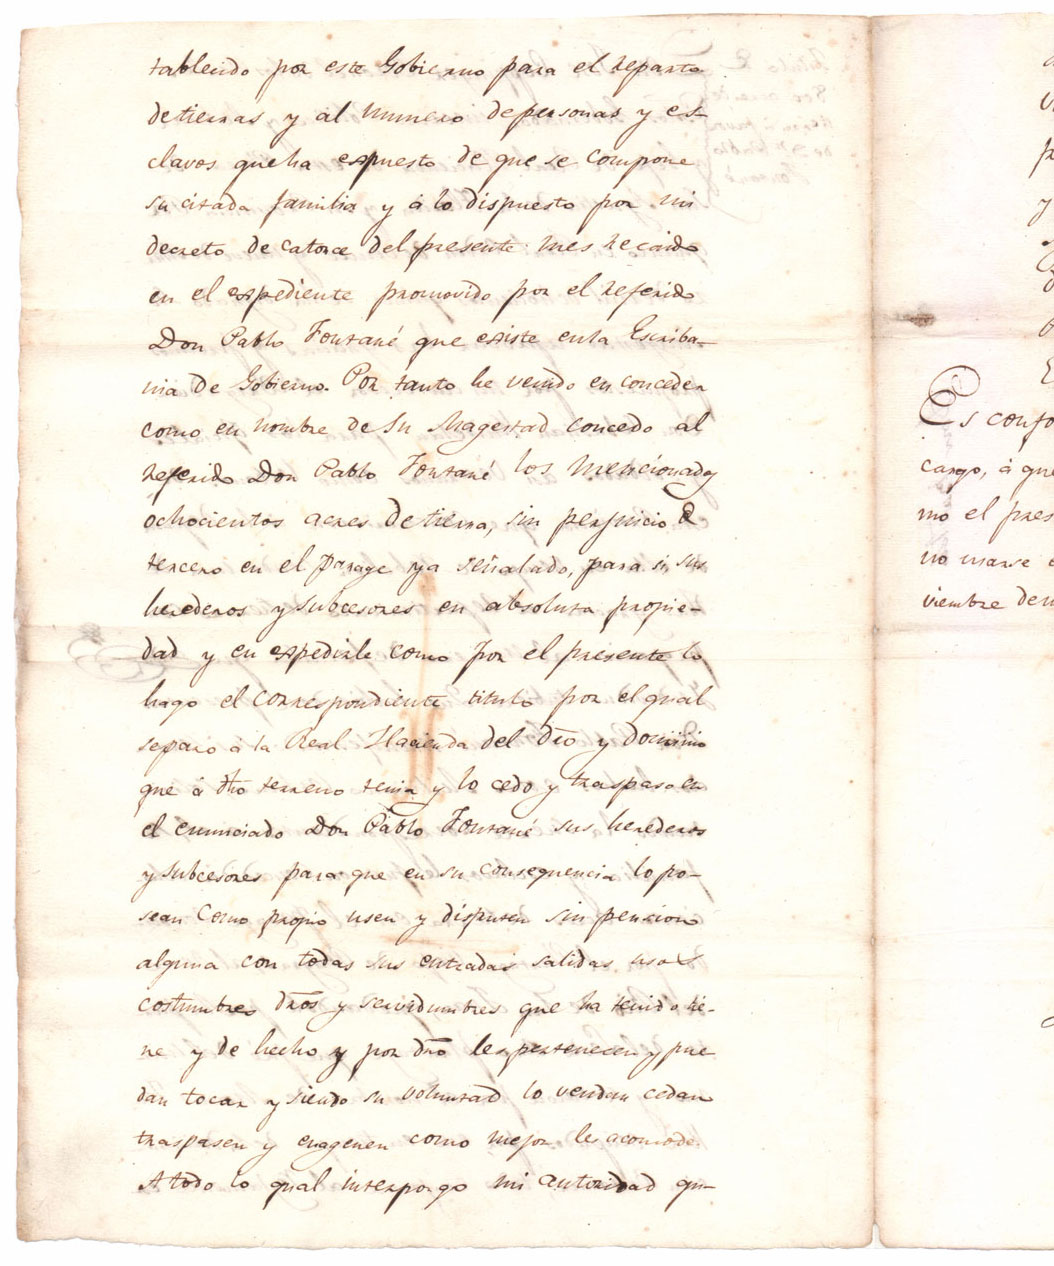 tableido por este Gobierno para el reparto
de tierras y al numero de personas y es-
clavos que ha expuesto de que se compone
su citada familia y á lo dispuesto por mi
decreto de catorce del presente mes recaido
en el expediente promovido por el referido
Don Pablo Fontané que existe en la Escriba-
nia de Gobierno. Por tanto he venido en conceder
como en nombre de Su Magestad concedo al
referido Don Pablo Fontané los mencionados
ochocientos acres de tierra, sin perjuicio de
tercero en el parage ya señalado, para si, sus
herederos y subcesores en absoluta propie-
dad y en expedirle como por el presente lo
hago el correspondiente titulo por el qual
separo á la Real Hacienda del dro y dominio
que á dho terreno tenia y lo cedo y traspaso en
el enunciado Don Pablo Fontané sus herederos
y subcesores para que en su consequencia lo po-
sean como propio usen y disputen sin pencion
alguna con todas sus entradas salidas, usos
costumbres dros y servidumbres que ha tenido tie-
ne y de hecho y por dro les pertenecen y pue
dan tocar y siendo su voluntad lo vendan cedan
traspasen y enagenen como mejor les acomode.
A todo lo qual interpongo mi autoridad qu-
Es confo
cargo, á que
mo el pres
no usarse
viembre de m